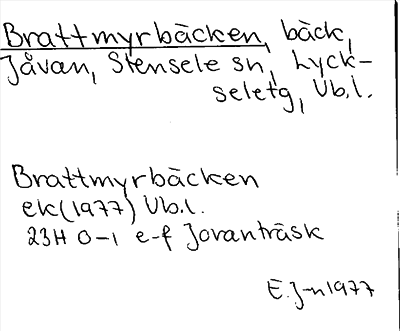 Brattmyrbäcken, bäck,
Jåvan, Stensele sn, Lyck-
seletg, Vb.l.
Brattmyrbäcken
ek(1977) Vb.l.
23H 0-1 e-f Jovanträsk
E.J-n1977